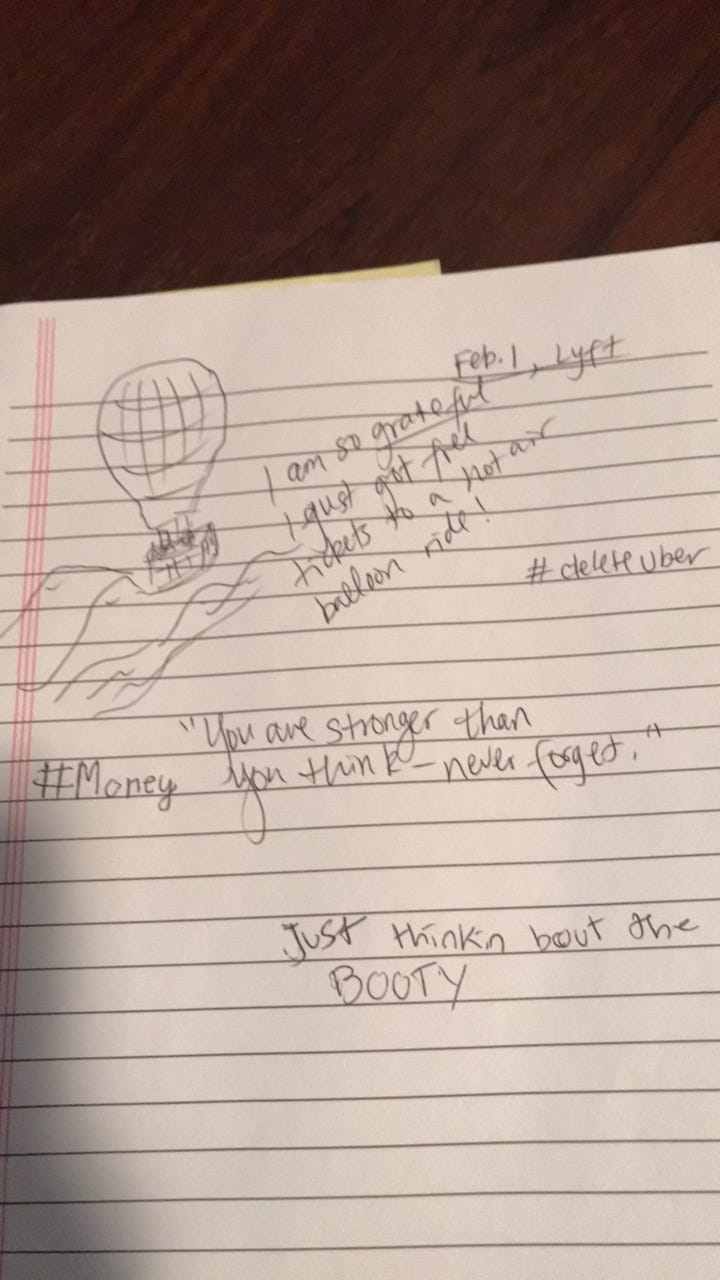 Feb. 1, Lyft
I am so grateful
I just got free
tickets to a hot air
balloon ride!
#deleteUber
"You are stronger than
you think - never forget."
#Money
Just thinkin bout the
BOOTY